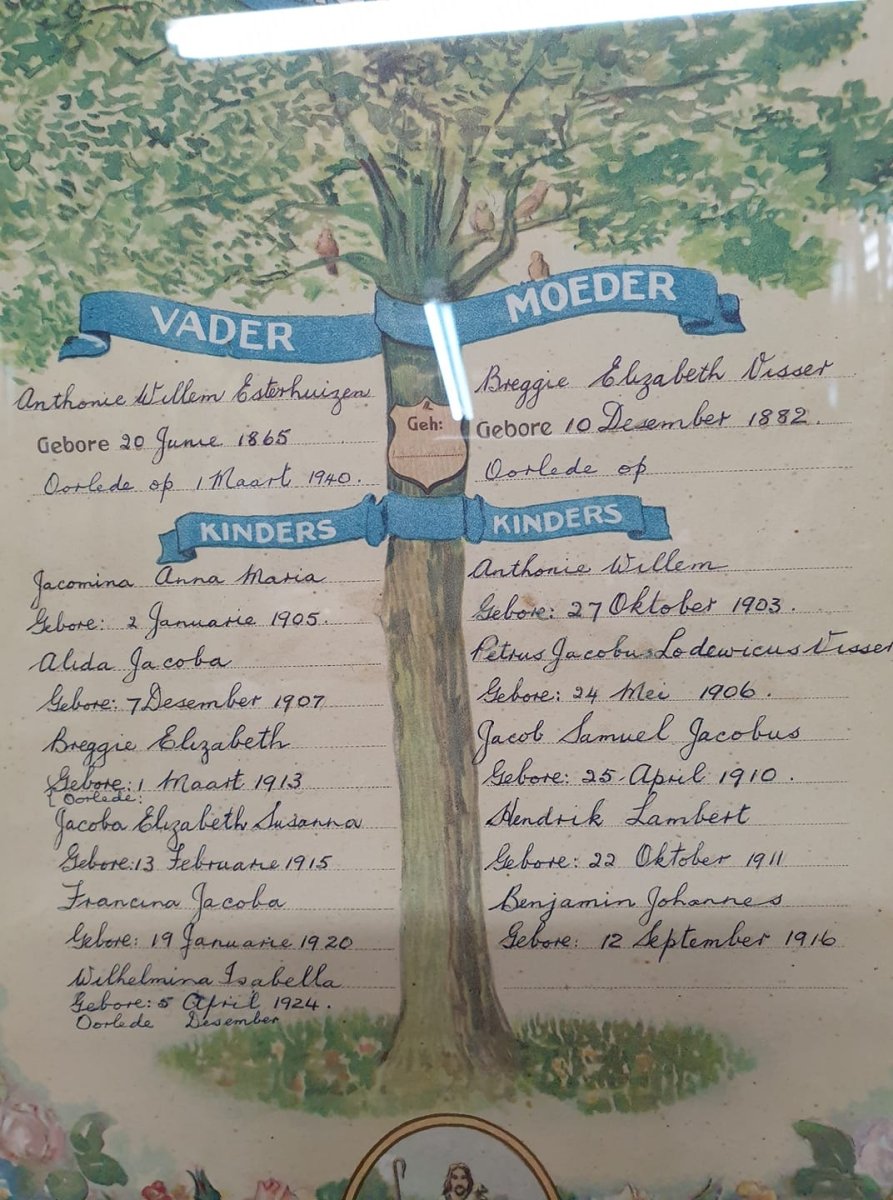 VADER
MOEDER
Anthonie Willem Esterhuizen
Gebore 20 Junie 1865
Oorlede op 1 Maart 1940.
Geh:
Breggie Elizabeth Visser
Gebore 10 Desember 1882.
Oorlede op
KINDERS
Jacomina Anna Maria
Gebore: 2 Januarie 1905.
Alida Jacoba
Gebore: 7 Desember 1907
Breggie Elizabeth
Gebore: 1 Maart 1913
Oorlede:
Jacoba Elizabeth Susanna
Gebore: 13 Februarie 1915
Francina Jacoba
Gebore: 19 Januarie 1920
Wilhelmina Isabella
Gebore: 5 April 1924.
Oorlede Desember
KINDERS
Anthonie Willem
Gebore: 27 Oktober 1903.
Petrus Jacobus Lodewicus Visser
Gebore: 24 Mei 1906.
Jacob Samuel Jacobus
Gebore: 25 April 1910.
Hendrik Lambert
Gebore: 22 Oktober 1911
Benjamin Johannes
Gebore: 12 September 1916